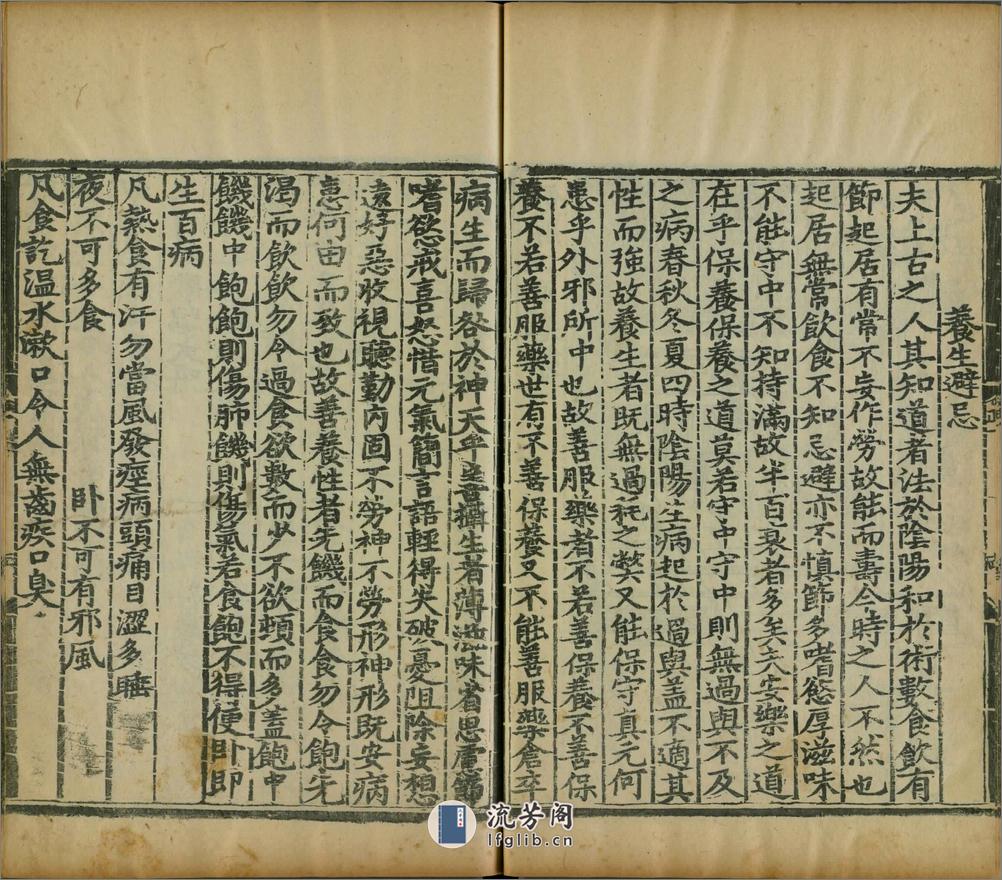 養生避忌
夫上古之人其知道者法於陰陽和於術數食飲有
節起居有常不妄作勞故能而壽今時之人不然也
起居無常飲食不知忌避亦不慎節多嗜慾厚滋味
不能守中不知持滿故半百衰者多矣夫安樂之道
在乎保養保養之道莫若守中守中則無過與不及
之病春秋冬夏四時陰陽生病起於過與盖不適其
性而強故養生者既無過耗之弊又能保守真元何
患乎外邪所中也故善服藥者不若善保養不善保
養不若善服藥世有不善保養又不能善服藥倉卒
病生而歸咎於神天乎善攝生者薄滋味省思慮節
嗜慾戒喜怒惜元氣簡言語輕得失破憂阻除妄想
遠好惡收視聽勤內固不勞神不勞形神形既安病
患何由而致也故善養性者先饑而食食勿令飽先
渴而飲飲勿令過食欲數而少不欲頓而多盖飽中
饑饑中飽飽則傷肺饑則傷氣若食飽不得便卧即
生百病
凡熱食有汗勿當風發痙病頭痛目澀多睡
夜不可多食　卧不可有邪風
凡食訖温水漱口令人無齒疾口臭
流芳阁
lfglib.cn